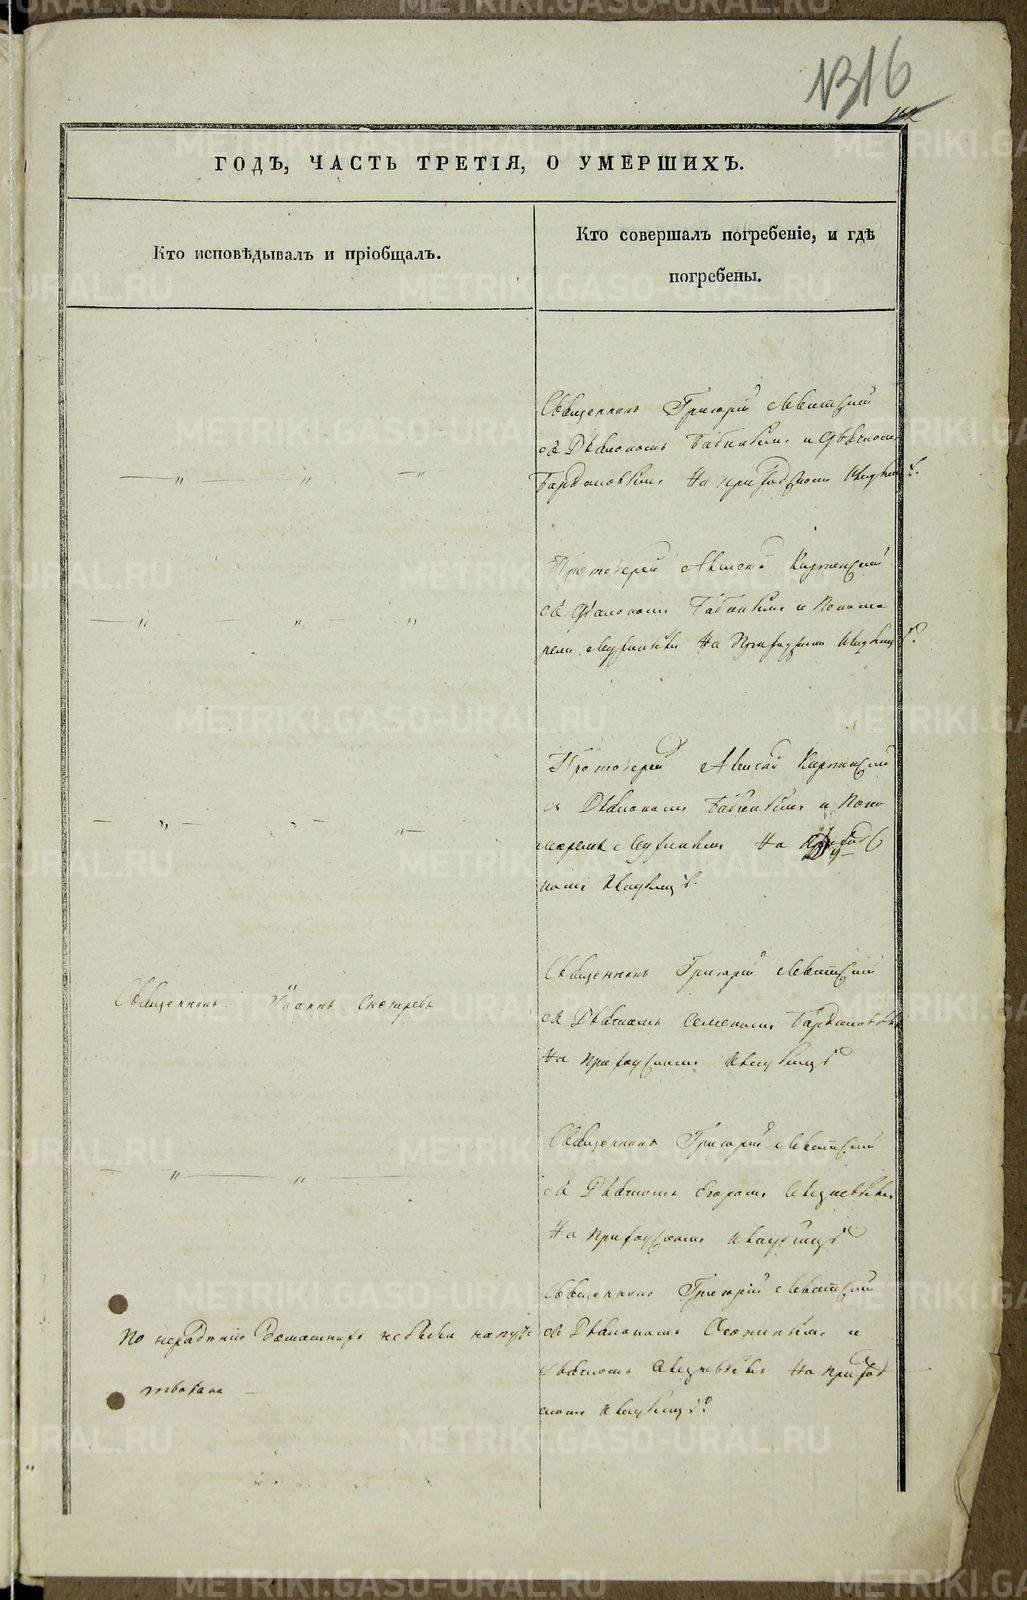 1316
ГОДЪ, ЧАСТЬ ТРЕТІЯ, О УМЕРШИХЪ.
Кто исповѣдывалъ и пріобщалъ.
Кто совершалъ погребеніе, и гдѣ
погребены.
Священникъ Григорій Левитскій
съ Діакономъ Бабинымъ и Дьячкомъ
На приходскомъ кладбищѣ.
Протоіерей Алексѣй Карпинскій
съ Діакономъ Бабинымъ и Понома
ремъ На Приходскомъ кладбищѣ.
Протоіерей Алексѣй Карпинскій
съ Діакономъ Бабинымъ и Поно
маремъ На Приходс
комъ Кладбищѣ.
Священникъ Іоаннъ
Священникъ Григорій Левитскій
съ Дьячкомъ Семеномъ
На приходскомъ Кладбищѣ
Священникъ Григорій Левитскій
съ Дьячкомъ Егоромъ
На приходскомъ кладбищѣ
По нерадѣнію домашнихъ небыла напут
ствована
Священникъ Григорій Левитскій
съ Діакономъ и
Дьячкомъ На приход
скомъ кладбищѣ
METRIKI.GASO-URAL.RU